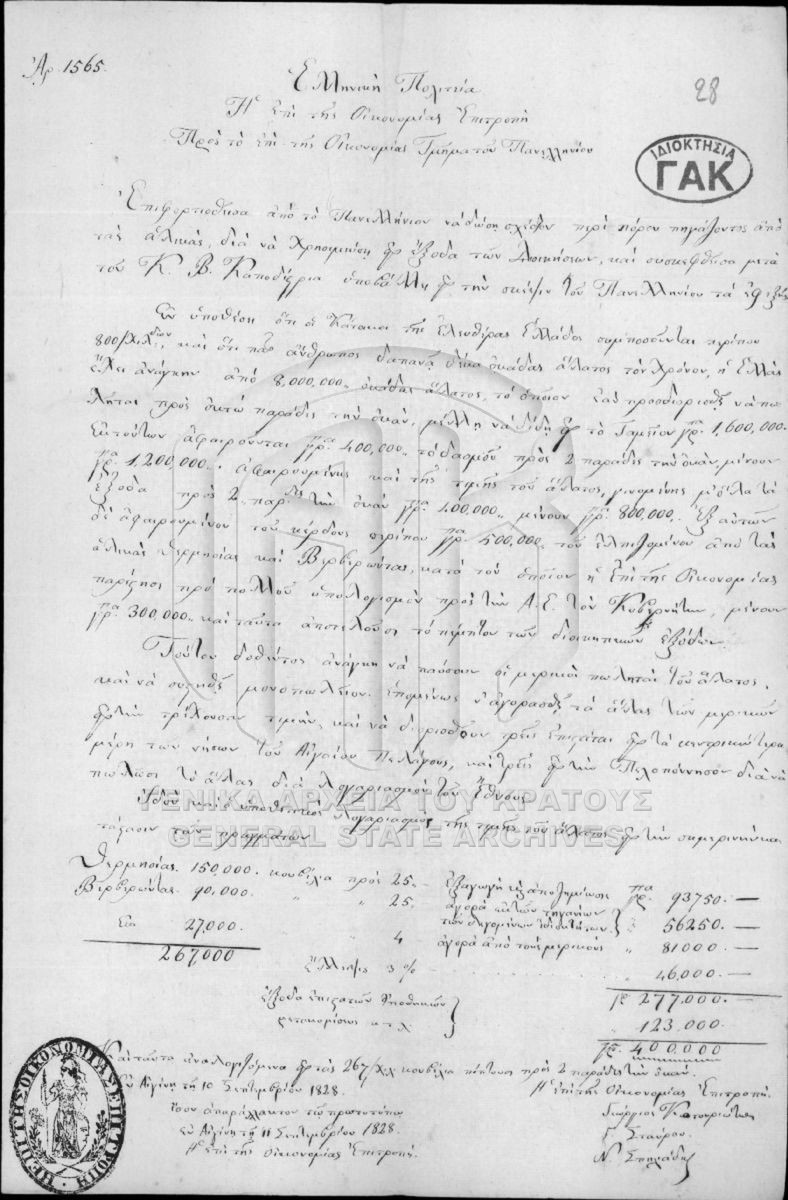 Ἀρ. 1565.
28
Ἑλληνικὴ Πολιτεία
Ἡ ἐπὶ τῆς Οἰκονομίας Ἐπιτροπὴ
Πρὸς τὸ ἐπὶ τῆς Οἰκονομίας Τμῆμα τοῦ Πανελληνίου
ΙΔΙΟΚΤΗΣΙΑ
ΓΑΚ
Ἐπιφορτισθεῖσα ἀπὸ τὸ Πανελλήνιον νὰ δώσῃ σχέδιον περὶ πόρου πηγάζοντος ἀπὸ
τὰς ἁλικάς, διὰ νὰ χρησιμεύσῃ εἰς ἔξοδα τῶν Διοικήσεων, καὶ συσκεφθεῖσα μετὰ
τοῦ Κ. Β. Καποδίστρια ὑποβάλλει εἰς τὴν σκέψιν τοῦ Πανελληνίου τὰ ἐφεξῆς
Ἐν ὑποθέσῃ ὅτι οἱ Κάτοικοι τῆς ἐλευθέρας Ἑλλάδος συμποσοῦνται περίπου
800/χιλ, καὶ ὅτι πᾶς ἄνθρωπος δαπανᾷ δέκα ὀκάδας ἅλατος τὸν χρόνον, ἡ Ἑλλὰς
ἔχει ἀνάγκην ἀπὸ 8,000,000,, ὀκάδας ἅλατος, τὸ ὁποῖον ἐὰν προσδιορισθῇ νὰ πω
λῆται πρὸς ὀκτὼ παράδες τὴν ὀκᾶν, μέλλει νὰ δίδῃ εἰς τὸ Ταμεῖον γρ. 1,600,000.
Ἐκ τούτων ἀφαιροῦνται γρ. 400,000. τὸ δασμοῦ πρὸς 2 παράδες τὴν ὀκᾶν, μένουν
γρ. 1,200,000,, ἀφαιρουμένης καὶ τῆς τιμῆς τοῦ ἅλατος, γινομένης μὲ ὅλα τὰ
ἔξοδα πρὸς 2,, παρδες τὴν ὀκᾶν γρ. 400,000,, μένουν γρ. 800,000. Ἐξ αὐτῶν
δὲ ἀφαιρουμένου τοῦ κέρδους περίπου γρ. 500,000,, τοῦ ἐλπιζομένου ἀπὸ τὰς
ἁλικὰς Θερμησίας καὶ Βερβερόντας, κατὰ τὸν ὁποῖον ἡ ἐπὶ τῆς Οἰκονομίας
παρέστησε πρὸ πολλοῦ ὑπολογισμὸν πρὸς τὴν Α. Ε. τὸν Κυβερνήτην, μένουν
γρ. 300,000,, καὶ ταῦτα ἀποτελοῦσι τὸ πέμπτον τῶν διοικητικῶν ἐξόδων.
Τούτου δοθέντος ἀνάγκη νὰ παύσουν οἱ μερικοὶ πωληταὶ τοῦ ἅλατος,
καὶ νὰ συστηθῇ μονοπωλεῖον. Ἑπομένως ν' ἀγορασθῇ τὸ ἅλας τῶν μερικῶν
εἰς τὴν τρέχουσαν τιμήν, καὶ νὰ διορισθοῦν τρεῖς ἐπιστάται εἰς τὰ κεντρικώτερα
μέρη τῶν νήσων τοῦ Αἰγαίου Πελάγους, καὶ τρεῖς εἰς τὴν Πελοπόννησον διὰ νὰ
πωλῶσι τὸ ἅλας διὰ λογαριασμὸν τοῦ Ἔθνους.
Ἰδοὺ καὶ ὁ ὑποθετικὸς λογαριασμὸς τῆς τιμῆς τοῦ ἅλατος εἰς τὴν σημερινὴν κα
τάστασιν τῶν πραγμάτων
ΓΕΝΙΚΑ ΑΡΧΕΙΑ ΤΟΥ ΚΡΑΤΟΥΣ
GENERAL STATE ARCHIVES
Θερμησίας. 150,000. κουβέλια πρὸς 25,, ἐξαγωγὴ ἀποζημίωσις γρ. 93750.—
Βερβερόντας. 90,000. ,, ,, 25. ἀγορὰ τῶν τηγανίων τῶν λεγομένων 56250.—
27,000. ,, 4 ἀγορὰ ἀπὸ τοὺς μερικοὺς ,, 81000.—
267,000
Ἔλλειψις 3 % ,, 46,000.—
γρ 277,000.—
ἔξοδα ἐπιστατῶν ἀποθηκῶν
μετακομίσεως κ.τ.λ. ,, 123,000.—
γρ. 400,000
Καὶ ταῦτα ἀναλογιζόμενα εἰς τὰς 267/χιλ κουβέλια πίπτουν πρὸς 2 παράδες τὴν ὀκᾶν.
Ἐν Αἰγίνῃ τῇ 10 Σεπτεμβρίου 1828.
Ἡ ἐπὶ τῆς Οἰκονομίας Ἐπιτροπή.
Γεώργιος Κουντουριώτης
Γ. Σταύρου.
Ν. Σπηλιάδης
ἴσον ἀπαράλλακτον τῷ πρωτοτύπῳ
ἐν Αἰγίνῃ τῇ 11 Σεπτεμβρίου 1828.
Ἡ ἐπὶ τῆς Οἰκονομίας Ἐπιτροπή.
Η ΕΠΙ ΤΗΣ ΟΙΚΟΝΟΜΙΑΣ ΕΠΙΤΡΟΠΗ